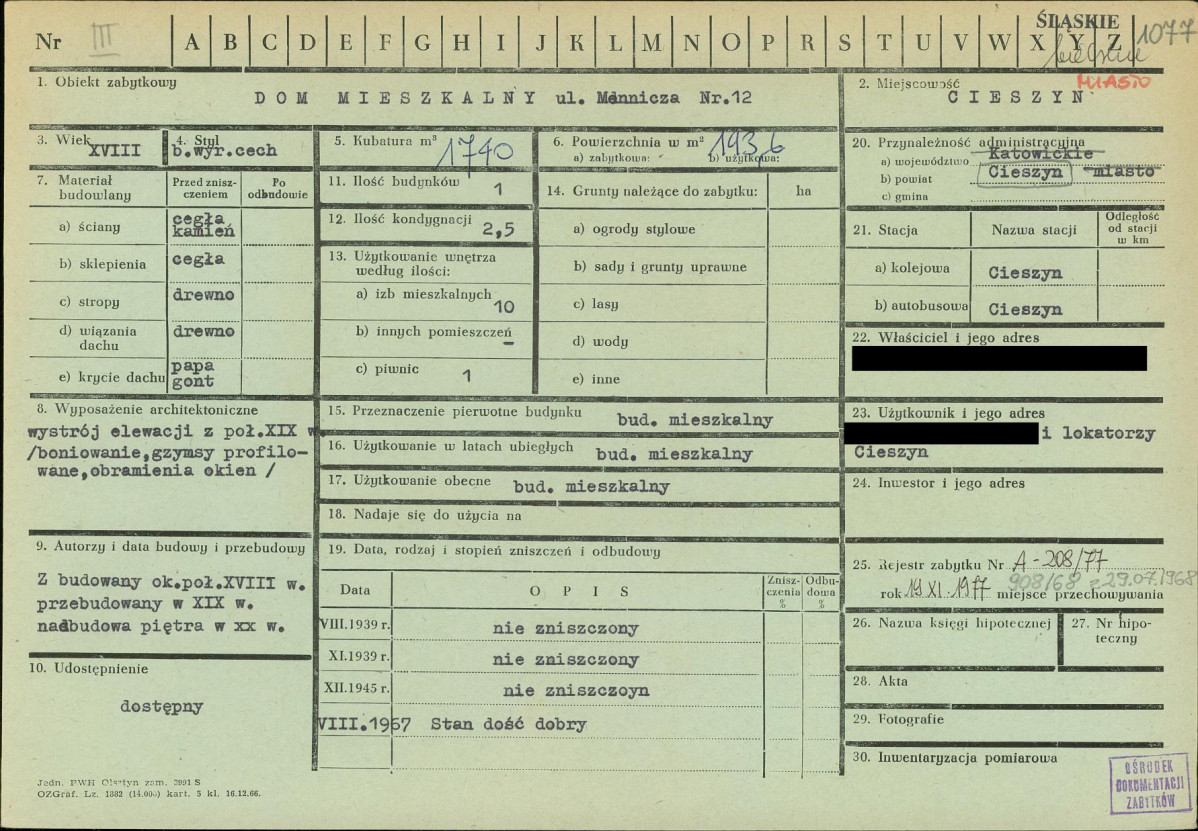 Nr III A B C D E F G H I J K L M N O P R S T U V W X Y Z
ŚLĄSKIE
1077
MIASTO
1. Obiekt zabytkowy
DOM MIESZKALNY ul. Mennicza Nr.12
2. Miejscowość
CIESZYN
3. Wiek
XVIII
4. Styl
b.wyr.cech
5. Kubatura m³
1740
6. Powierzchnia w m²
a) zabytkowa: b) użytkowa:
193,6
20. Przynależność administracyjna
a) województwo Katowickie
b) powiat Cieszyn miasto
c) gmina
7. Materiał budowlany
Przed zniszczeniem
Po odbudowie
a) ściany
cegła
kamień
b) sklepienia
cegła
c) stropy
drewno
d) wiązania dachu
drewno
e) krycie dachu
papa
gont
11. Ilość budynków
1
12. Ilość kondygnacji
2,5
13. Użytkowanie wnętrza
według ilości:
a) izb mieszkalnych
10
b) innych pomieszczeń
–
c) piwnic
1
14. Grunty należące do zabytku: ha
a) ogrody stylowe
b) sady i grunty uprawne
c) lasy
d) wody
e) inne
21. Stacja
Nazwa stacji
Odległość
od stacji
w km
a) kolejowa Cieszyn
b) autobusowa Cieszyn
22. Właściciel i jego adres
23. Użytkownik i jego adres
i lokatorzy
Cieszyn
24. Inwestor i jego adres
8. Wyposażenie architektoniczne
wystrój elewacji z poł.XIX w
/boniowanie,gzymsy profilo-
wane,obramienia okien /
15. Przeznaczenie pierwotne budynku bud. mieszkalny
16. Użytkowanie w latach ubiegłych bud. mieszkalny
17. Użytkowanie obecne bud. mieszkalny
18. Nadaje się do użycia na
9. Autorzy i data budowy i przebudowy
Z budowany ok.poł.XVIII w.
przebudowany w XIX w.
nadbudowa piętra w xx w.
10. Udostępnienie
dostępny
19. Data, rodzaj i stopień zniszczeń i odbudowy
Data
OPIS
Znisz-
czenia
%
Odbu-
dowa
%
VIII.1939 r. nie zniszczony
XI.1939 r. nie zniszczony
XII.1945 r. nie zniszczoyn
VIII.1967 Stan dość dobry
25. Rejestr zabytku Nr A-208/77
rok 19 XI. 1977 miejsce przechowywania
908/68 z 29.07.1968
26. Nazwa księgi hipotecznej
27. Nr hipo-
teczny
28. Akta
29. Fotografie
30. Inwentaryzacja pomiarowa
OŚRODEK
DOKUMENTACJI
ZABYTKÓW
Jedn. PWH Olsztyn zam. 3991 S
OZGraf. Lz. 1382 (14.000) kart. 5 kl. 16.12.66.